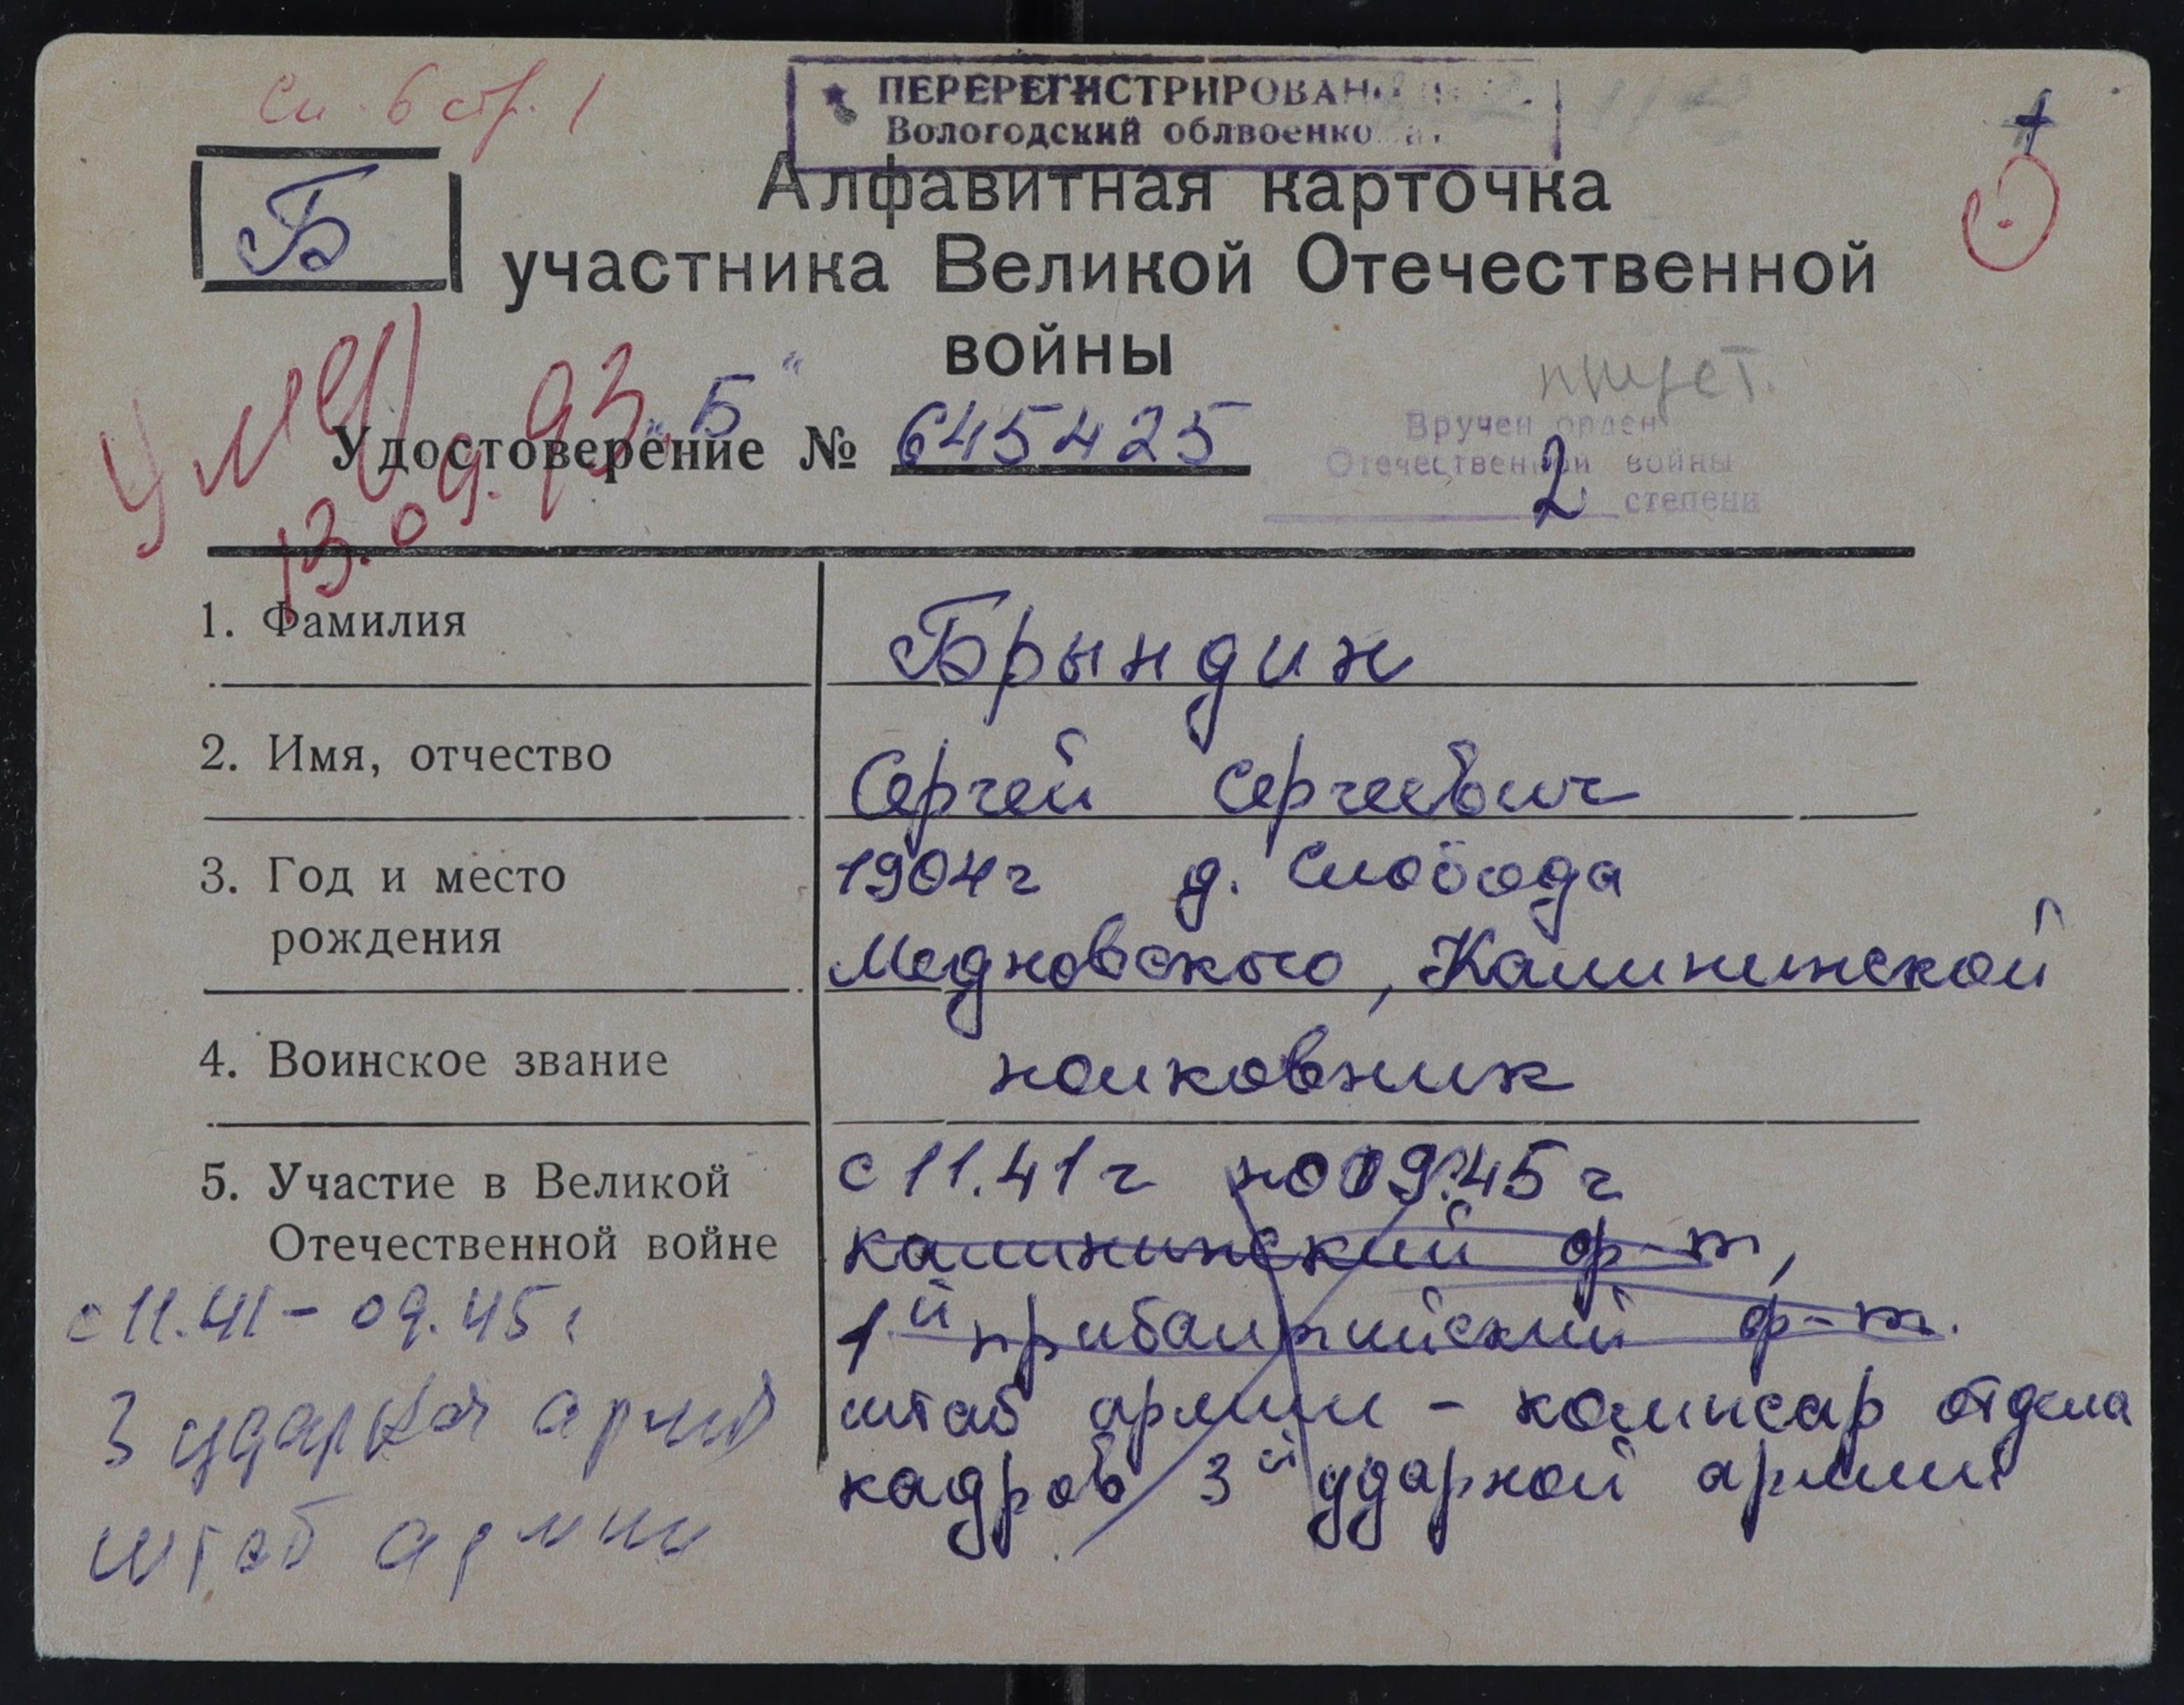 Сп. 6 стр. 1
ПЕРЕРЕГИСТРИРОВАН
Вологодский облвоенкомат
Б
Алфавитная карточка
участника Великой Отечественной
войны
умер
13.09.93
„Б“
Удостоверение № 645425
Вручен орден
Отечественной войны
2 степени
1. Фамилия
Брындин
2. Имя, отчество
Сергей Сергеевич
3. Год и место
рождения
1904г д. Слобода
Медновского, Калининской
4. Воинское звание
полковник
5. Участие в Великой
Отечественной войне
с 11.41г по 09.45г
калининский ф-т,
1й прибалтийский ф-т.
штаб армии - комиссар отдела
кадров 3й ударной армии
с 11.41 - 09.45г
3 ударная армия
штаб армии